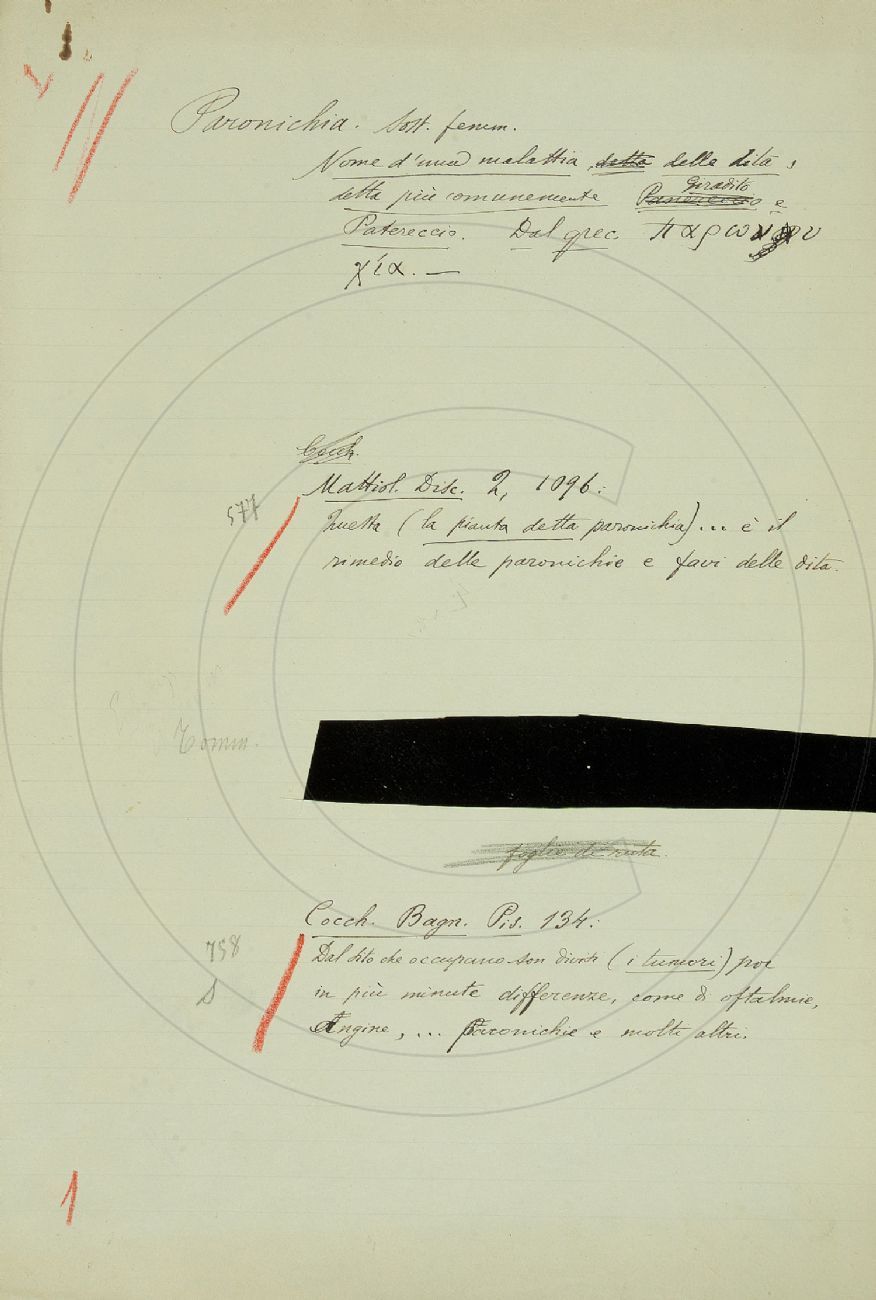 Paronichia. Sost. femm.
Nome d'una malattia, detta delle dita,
detta più comunemente Panereccio Giradito e
Patereccio. Dal grec. παρωνυ
χία. —
Cocch.
577
Mattiol. Disc. 2, 1096:
Questa (la pianta detta paronichia)... è il
rimedio delle paronichie e favi delle dita.
Tomm.
foglie di ruta.
758
Cocch. Bagn. Pis. 134:
Dal sito che occupano son divisi (i tumori) poi
in più minute differenze, come di oftalmie,
Angine, ... Paronichie e molti altri.
1